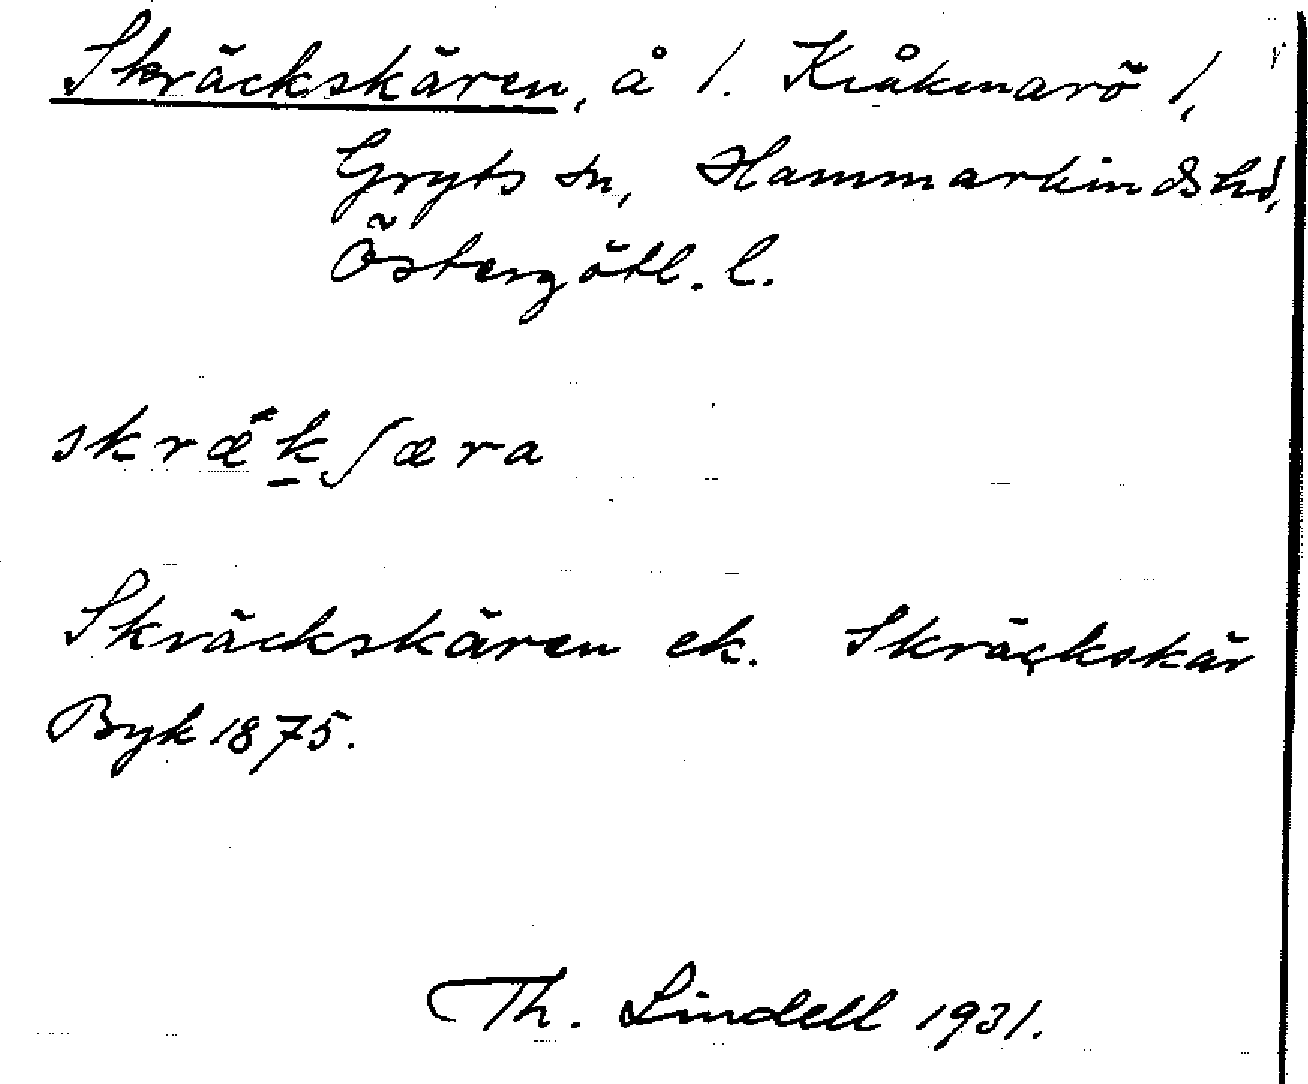 Skräckskären, å 1. Kråkmarö 1,
Gryts sn, Hammarkinds hd,
Östergötl. l.
skrækʃæra
Skräckskären ek. Skräckskär
Byk 1875.
Th. Lindell 1931.